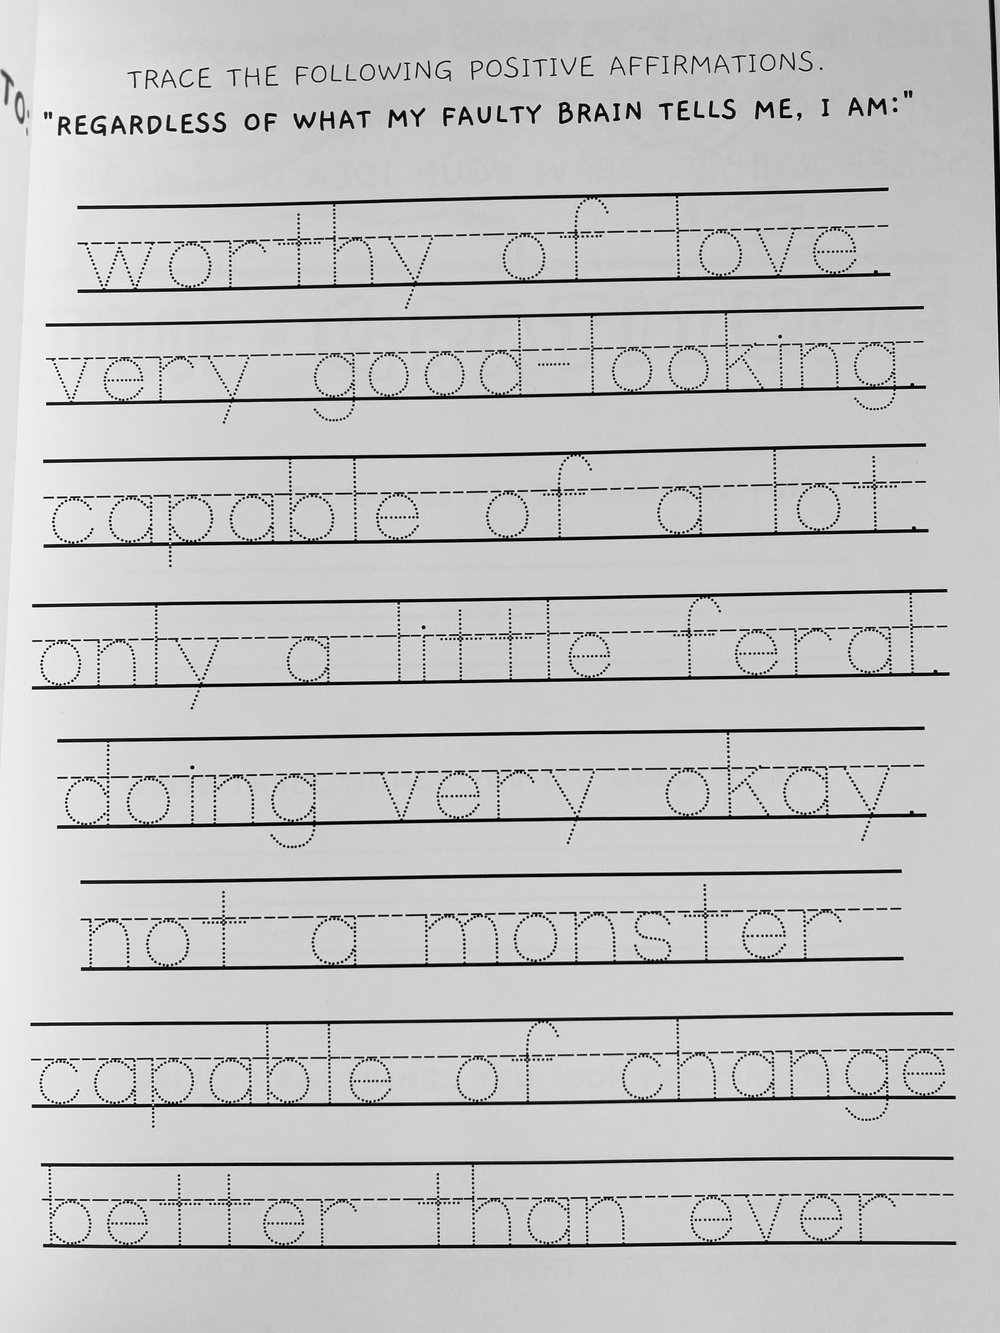 TO:
TRACE THE FOLLOWING POSITIVE AFFIRMATIONS.
"REGARDLESS OF WHAT MY FAULTY BRAIN TELLS ME, I AM:"
worthy of love.
very good-looking.
capable of a lot.
only a little feral.
doing very okay.
not a monster
capable of change
better than ever